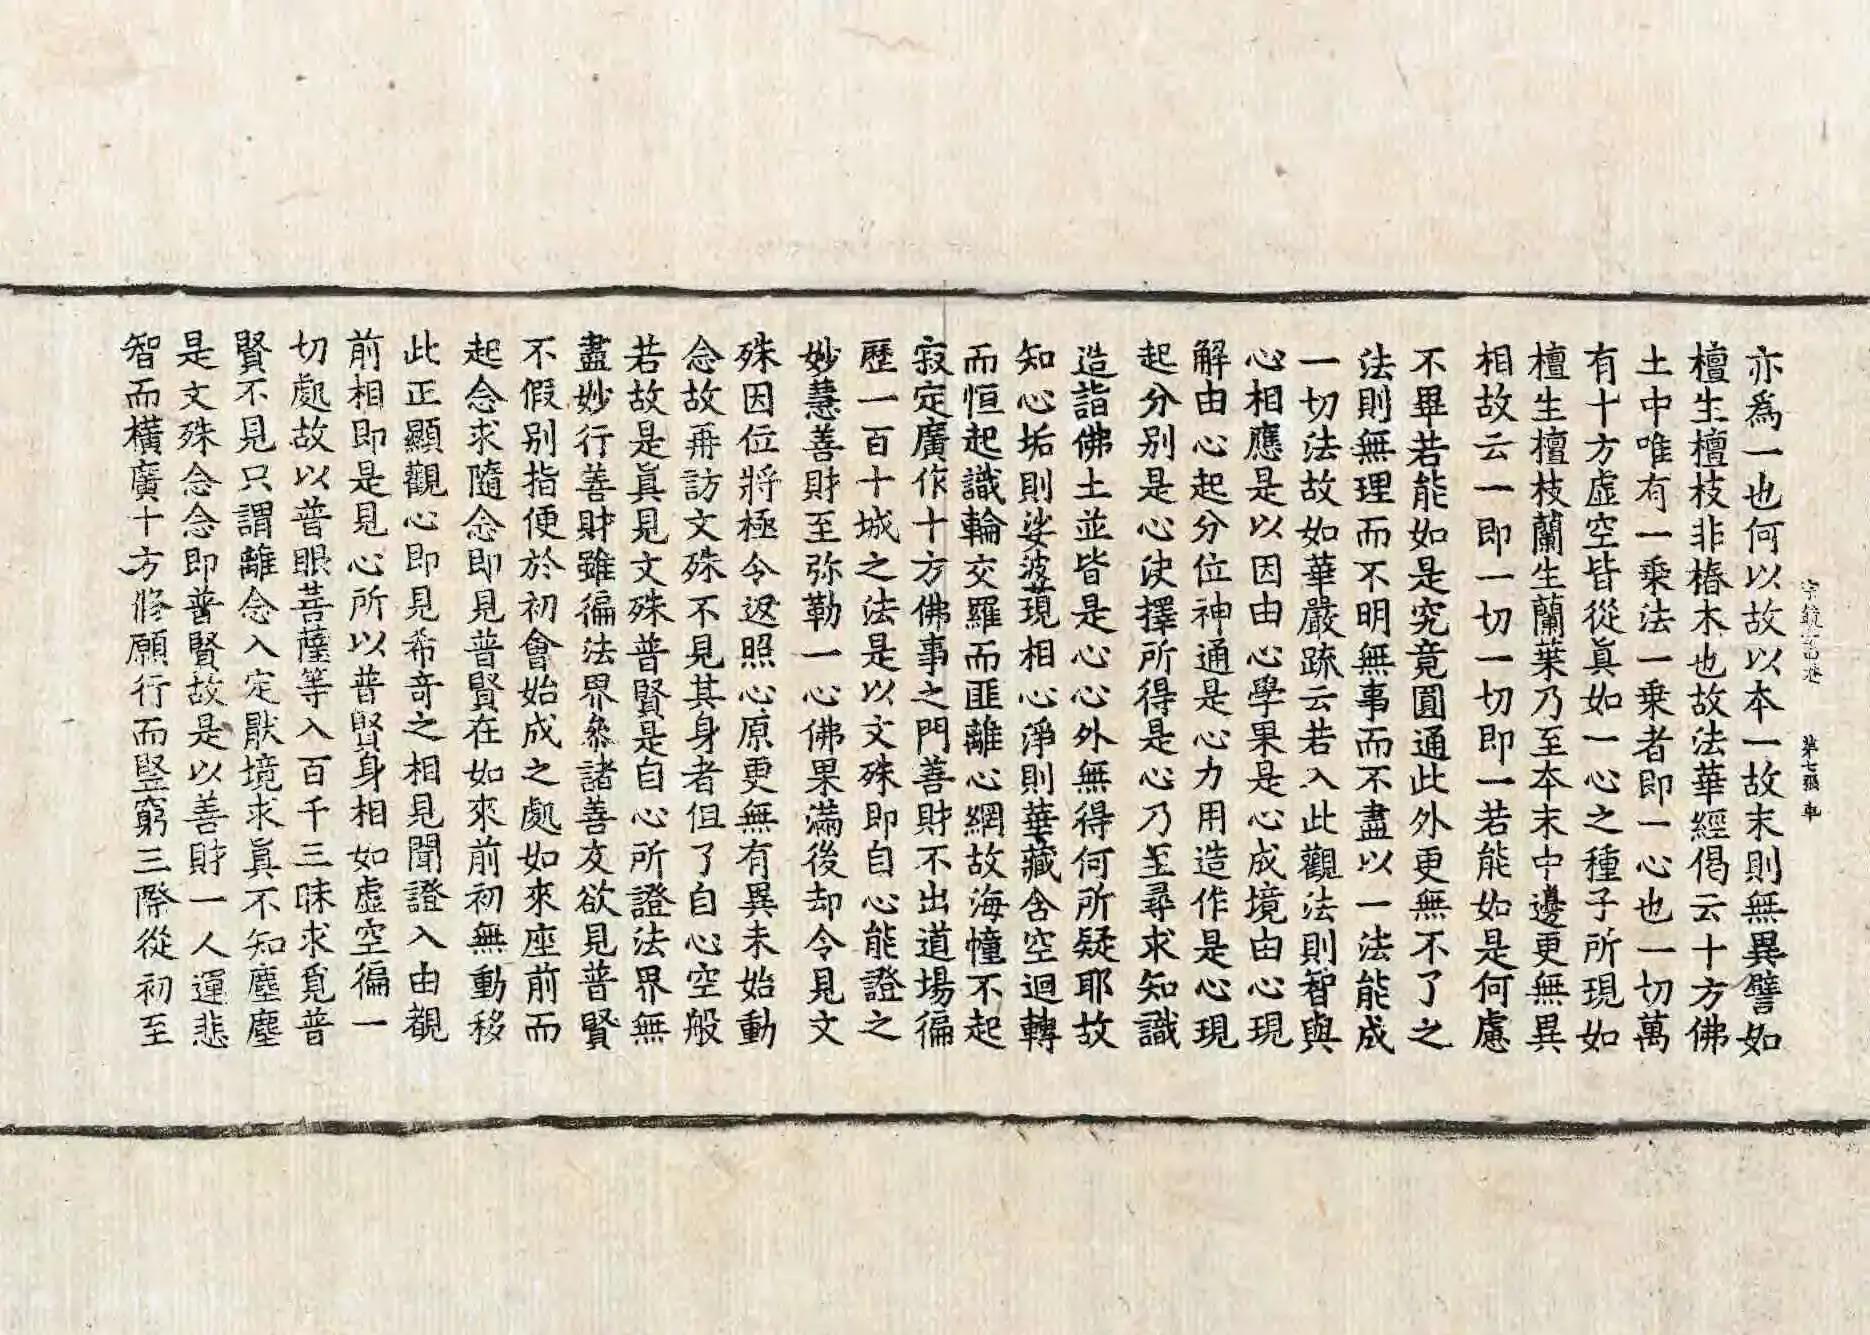 亦爲一也何以故以本一故末則無異譬如
檀生檀枝非椿木也故法華經偈云十方佛
土中唯有一乘法一乘者即一心也一切萬
有十方虛空皆從真如一心之種子所現如
檀生檀枝蘭生蘭葉乃至本末中邊更無異
相故云一即一切一切即一若能如是何慮
不畢若能如是究竟圓通此外更無不了之
法則無理而不明無事而不盡以一法能成
一切法故如華嚴疏云若入此觀法則智與
心相應是以因由心學果是心成境由心現
解由心起分位神通是心力用造作是心現
起分別是心決擇所得是心乃至尋求知識
造詣佛土並皆是心心外無得何所疑耶故
知心垢則娑婆現相心淨則華藏含空迴轉
而恒起識輪交羅而匪離心網故海幢不起
寂定廣作十方佛事之門善財不出道場徧
歷一百十城之法是以文殊即自心能證之
妙慧善財至弥勒一心佛果滿後却令見文
殊因位將極令返照心原更無有異未始動
念故再訪文殊不見其身者但了自心空般
若故是真見文殊普賢是自心所證法界無
盡妙行善財雖徧法界參諸善友欲見普賢
不假別指便於初會始成之處如來座前而
起念求隨念即見普賢在如來前初無動移
此正顯觀心即見希奇之相見聞證入由觀
前相即是見心所以普賢身相如虛空徧一
切處故以普眼菩薩等入百千三昧求覓普
賢不見只謂離念入定厭境求真不知塵塵
是文殊念念即普賢故是以善財一人運悲
智而橫廣十方修願行而竪窮三際從初至